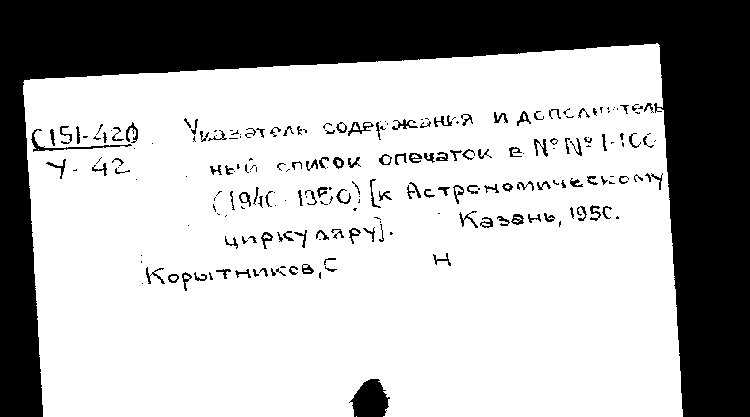 С151-420 Указатель содержания и дополнитель
У-42 ный список опечаток в №№ 1-100
(1940-1950) [к Астрономическому
циркуляру]. Казань, 1950.
Корытников, С Н